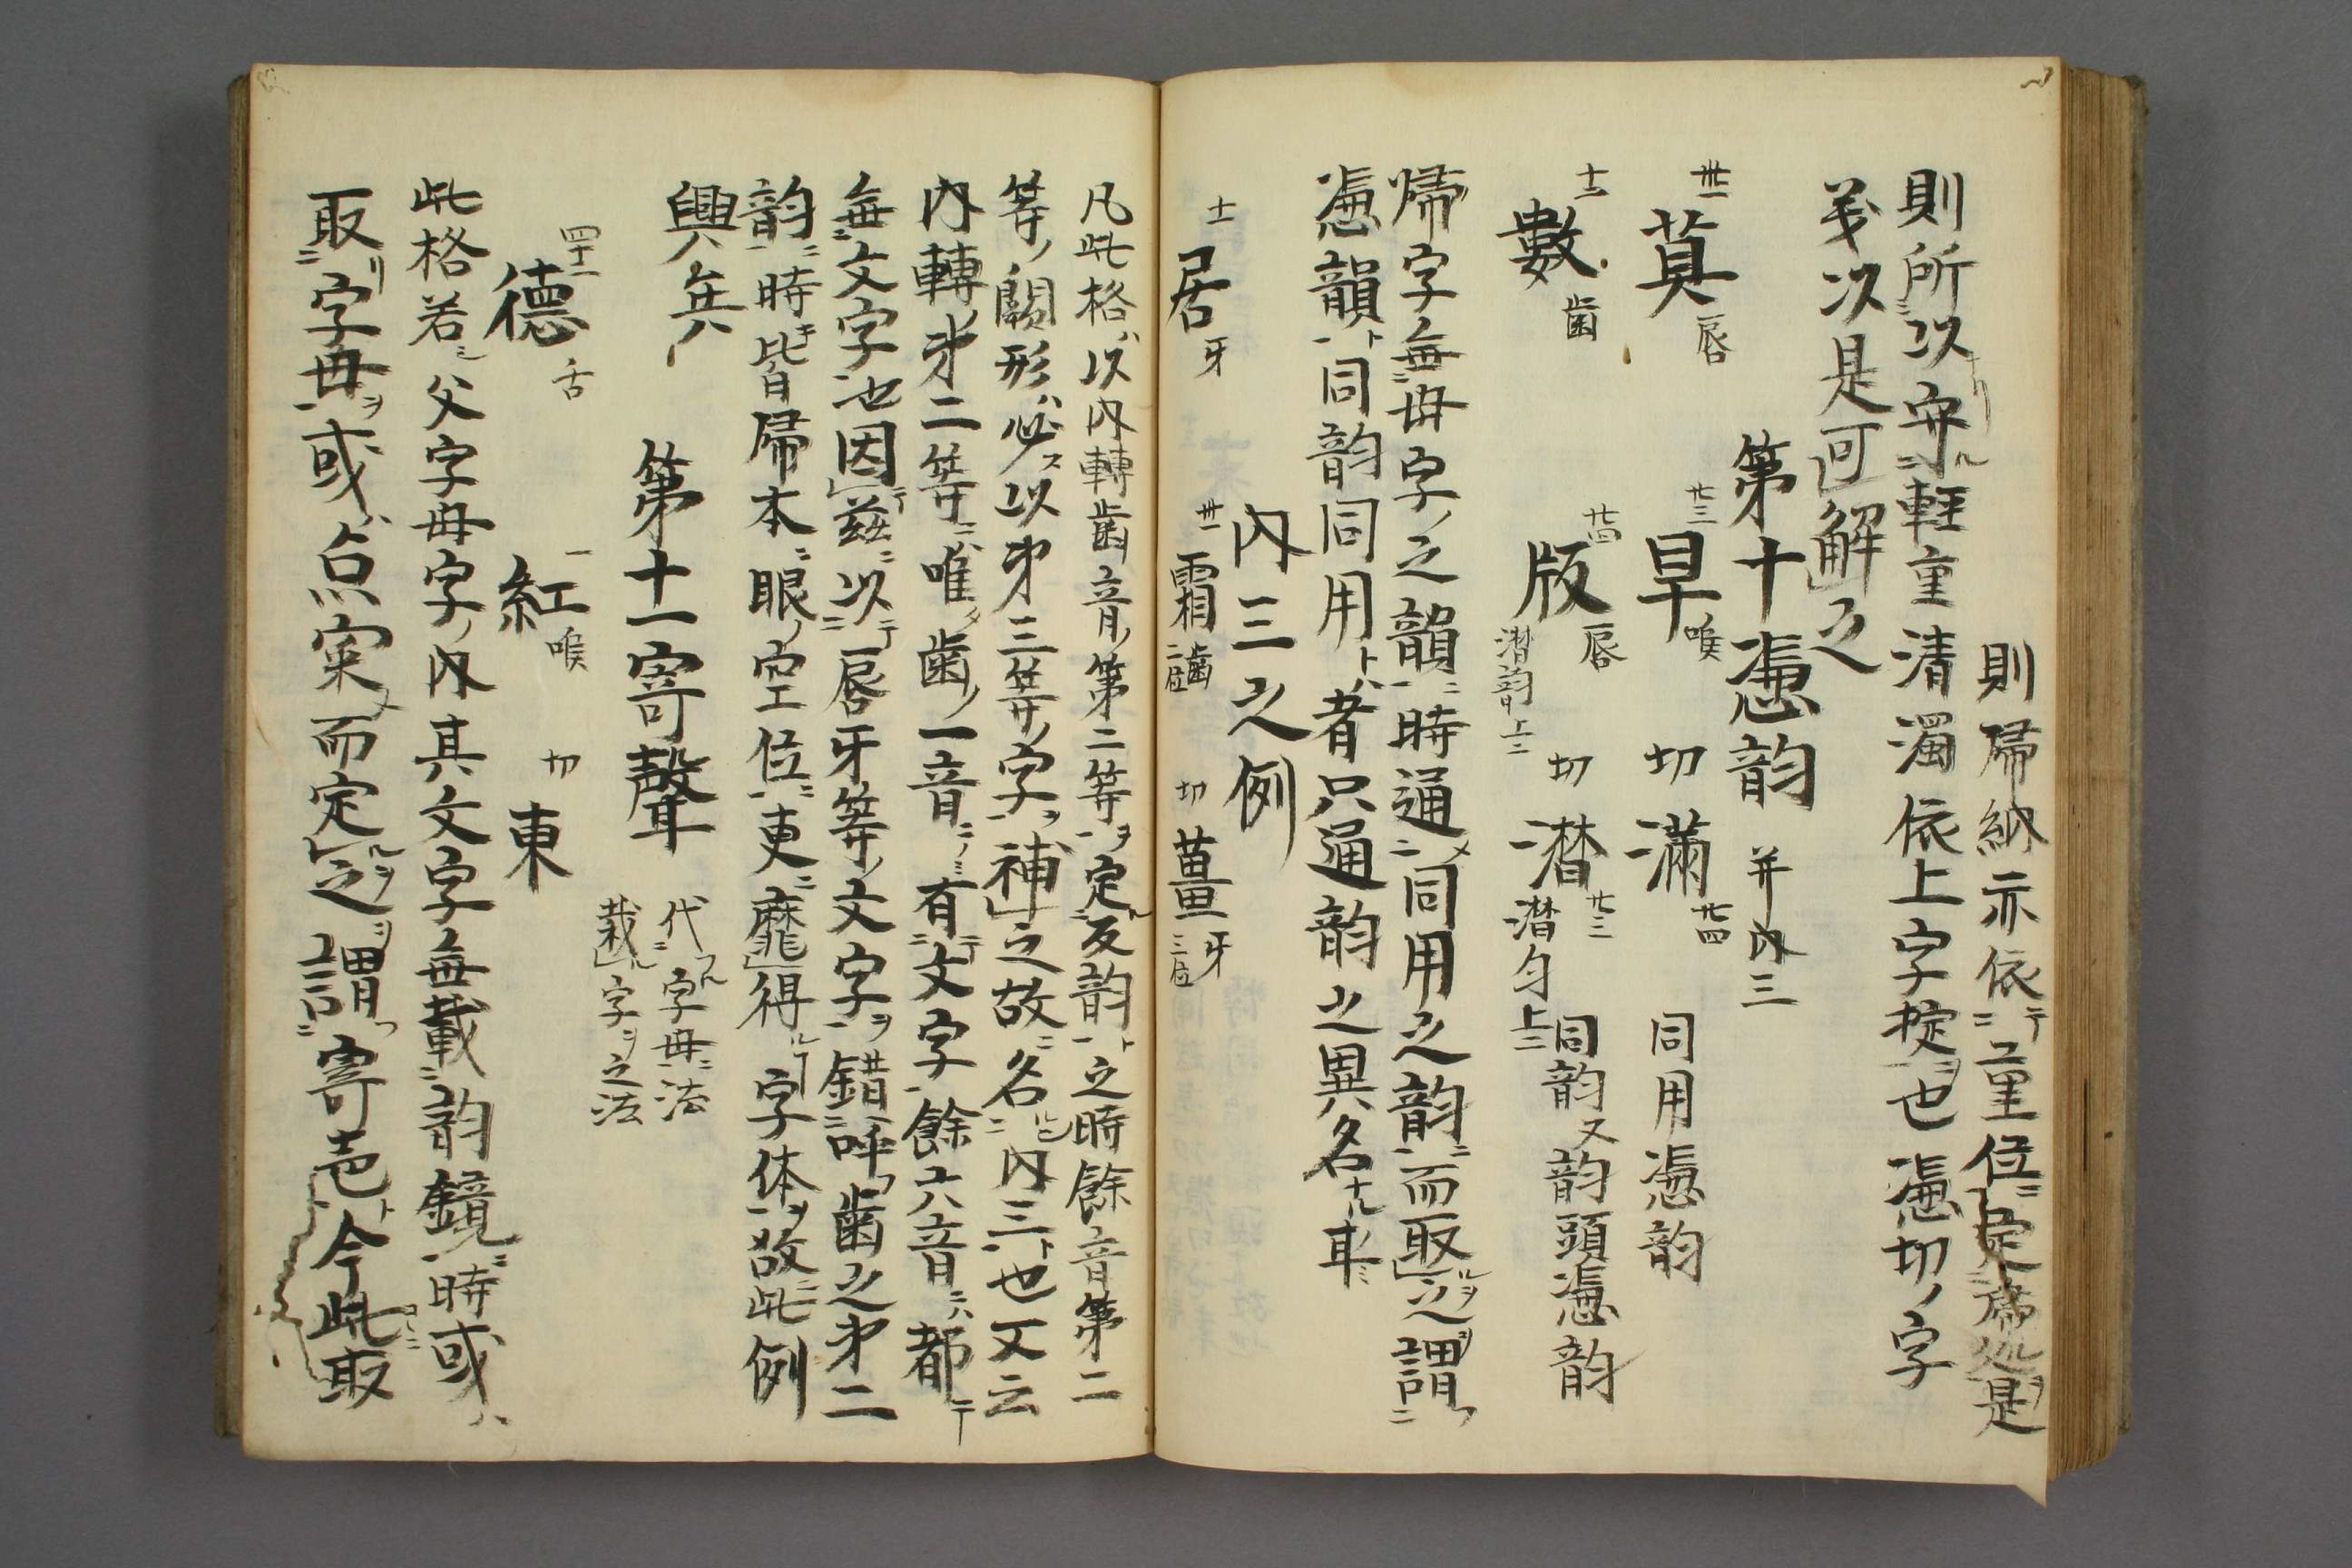 則帰納亦依重位定帰処是
則所以守軽重清濁依上字掟也憑切ノ字
义以是可解之
第十憑韵 并内三
卅一 莫 唇 廿三 旱 喉 切 満 廿四 同用憑韵
十二 數 歯 廿四 版 唇 潸韵上二 切 潸 廿三 潸匀上二 同韵又韵頭憑韵
帰字無毋字ノ之韻時通同用之韵而取之謂
憑韻ト同韵同用トハ者只通韵之異名ナル耳
内三之例
十一 居 牙 卅一 霜 歯二位 切 薑 牙三位
凡此格ハ以内轉歯音ノ第二等ヲ定反韵ト之時餘音第二
等ノ闕形ハ必ス以㐧三等ノ字ヲ補之故ニ名内三ト也又云
内轉㐧二等ニハ唯歯ノ一音ニノミ有文字餘六音ニハ都テ
無文字也因茲ニ以唇牙等ノ文字ヲ錯呼歯之㐧二
韵時キ皆帰本眼ノ空位更ニ靡得字体ヲ故ニ此例
興矣
第十一寄聲 代フル字毋ニ法 栽ル字ヲ之法
四十二 德 舌 一 紅 喉 切 東
此格若シ父字毋字ノ内其文字無載韵鏡ニ時或ハ
取リ字毋ヲ或ハ点窠メ而定之謂寄声ト今此取